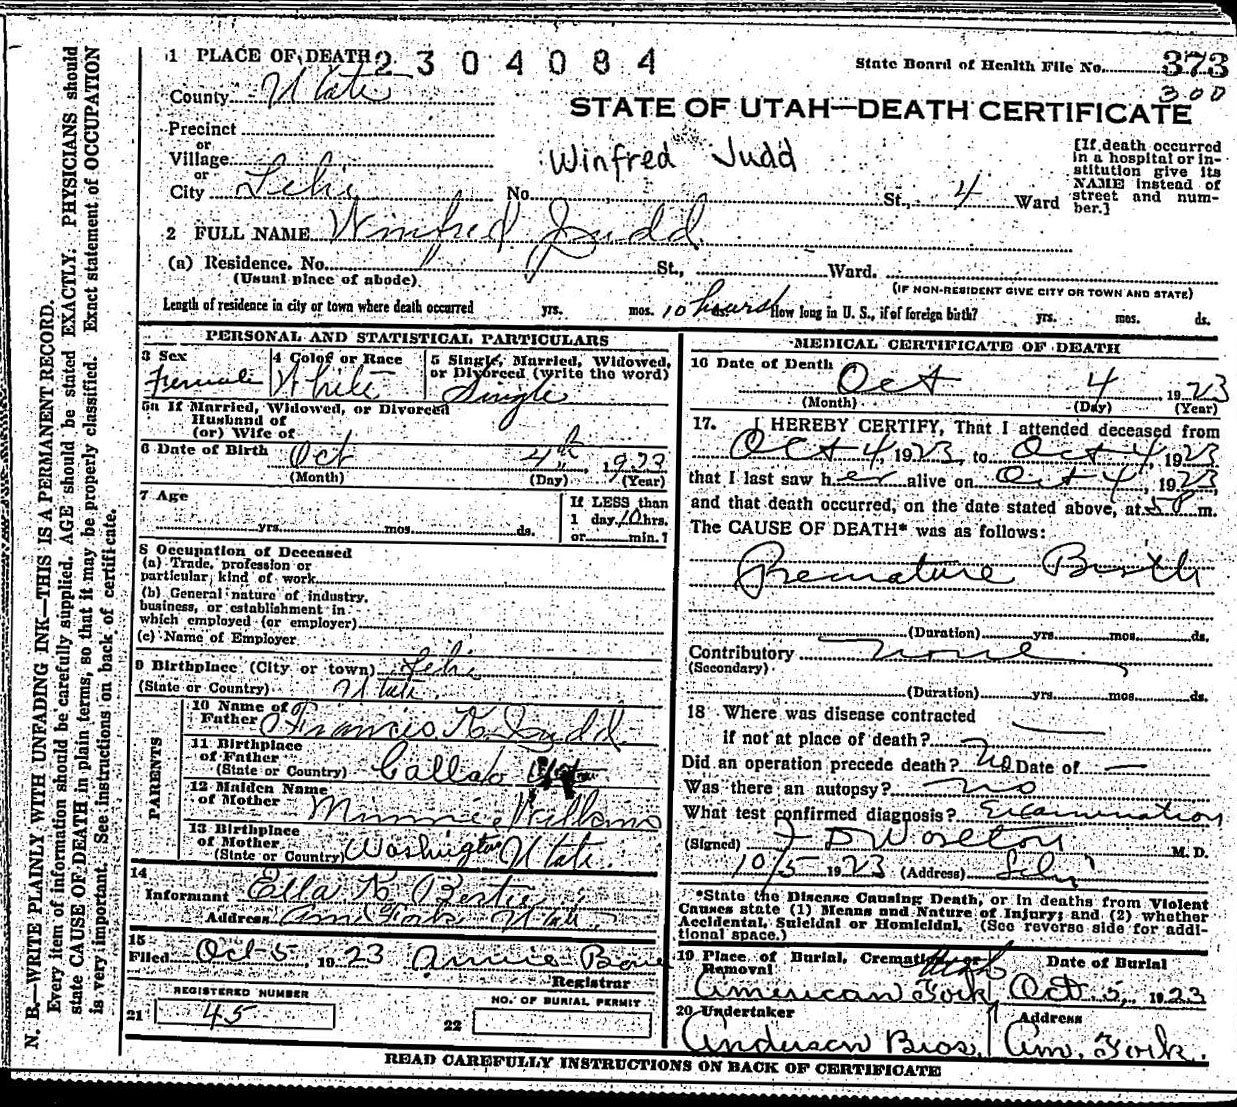 1 PLACE OF DEATH 2304084
State Board of Health File No. 373
300
County Utah
STATE OF UTAH—DEATH CERTIFICATE
Precinct
or
Village
or
City Lehi No. St., 4 Ward
Winfred Judd
[If death occurred
in a hospital or in-
stitution give its
NAME instead of
street and num-
ber.]
2 FULL NAME Winfred Judd
(a) Residence. No. St., Ward.
(Usual place of abode)
(IF NON-RESIDENT GIVE CITY OR TOWN AND STATE)
Length of residence in city or town where death occurred yrs. mos. 10 hours How long in U. S., if of foreign birth? yrs. mos. ds.
PERSONAL AND STATISTICAL PARTICULARS
3 Sex
Female
4 Color or Race
White
5 Single, Married, Widowed,
or Divorced (write the word)
Single
5a If Married, Widowed, or Divorced
Husband of
(or) Wife of
6 Date of Birth Oct 4th, 1923
(Month) (Day) (Year)
7 Age
yrs. mos. ds.
If LESS than
1 day, 10 hrs.
or min.?
8 Occupation of Deceased
(a) Trade, profession or
particular, kind of work
(b) General nature of industry,
business, or establishment in
which employed (or employer)
(c) Name of Employer
9 Birthplace (City or town) Lehi
(State or Country) Utah.
PARENTS
10 Name of
Father Francis K. Judd
11 Birthplace
of Father
(State or Country)
12 Maiden Name
of Mother Minnie
13 Birthplace
of Mother
(State or Country) Washington Utah.
14
Informant Ella K
Address Am Fork Utah.
15
Filed Oct-5 1923 Annie
Registrar
REGISTERED NUMBER
21 45
NO. OF BURIAL PERMIT
22
MEDICAL CERTIFICATE OF DEATH
16 Date of Death Oct 4, 1923
(Month) (Day) (Year)
17. I HEREBY CERTIFY, That I attended deceased from
Oct 4, 1923, to Oct 4, 1923
that I last saw her alive on Oct 4, 1923
and that death occurred, on the date stated above, at 5 P m.
The CAUSE OF DEATH* was as follows:
Premature Birth
(Duration) yrs. mos. ds.
Contributory none
(Secondary)
(Duration) yrs. mos. ds.
18 Where was disease contracted
if not at place of death?
Did an operation precede death? No Date of —
Was there an autopsy? no
What test confirmed diagnosis? Examination
(Signed) M. D.
10/5 1923 (Address) Lehi
*State the Disease Causing Death, or in deaths from Violent
Causes state (1) Means and Nature of Injury; and (2) whether
Accidental, Suicidal or Homicidal. (See reverse side for addi-
tional space.)
19 Place of Burial, Cremation or
Removal
American Fork
Date of Burial
Oct. 5, 1923
20 Undertaker
Anderson Bros.
Address
Am. Fork.
READ CAREFULLY INSTRUCTIONS ON BACK OF CERTIFICATE
N. B.—WRITE PLAINLY WITH UNFADING INK—THIS IS A PERMANENT RECORD.
Every item of information should be carefully supplied. AGE should be stated EXACTLY. PHYSICIANS should
state CAUSE OF DEATH in plain terms, so that it may be properly classified. Exact statement of OCCUPATION
is very important. See instructions on back of certificate.